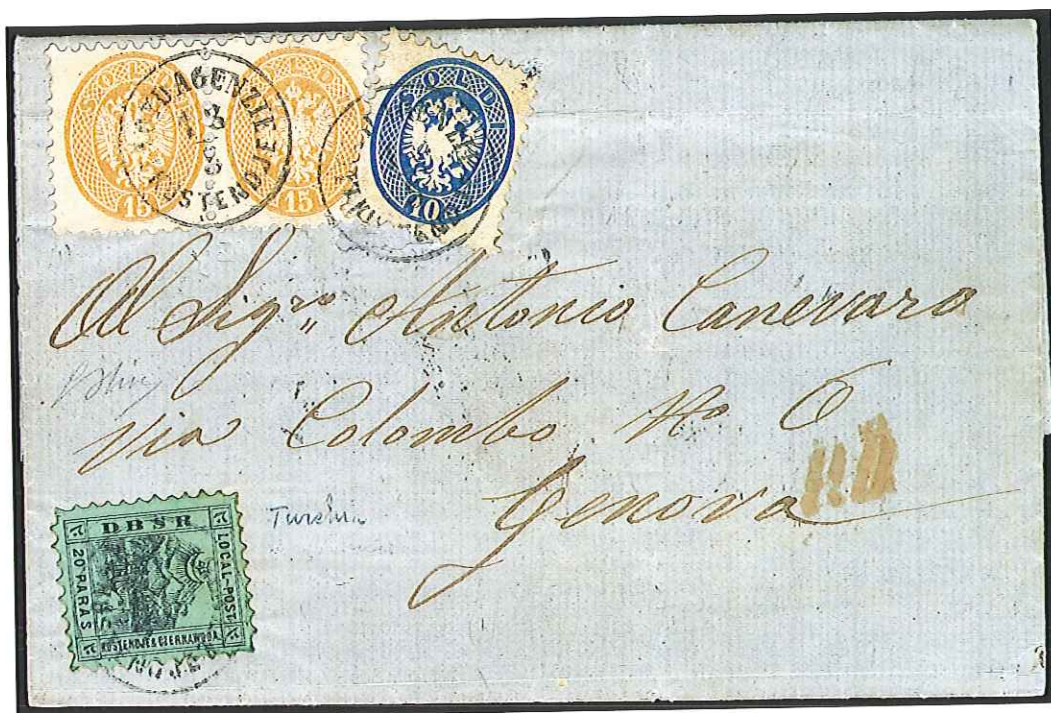 SOLDI SOLDI SOLDI
15 15 10
AGENZIE
KUSTENDJE
Al Sigro Antonio Canevaro
via Colombo No 6
Genova
DBSR
LOCAL-POST
20 PARAS
KUSTENDJE & CZERNAWODA